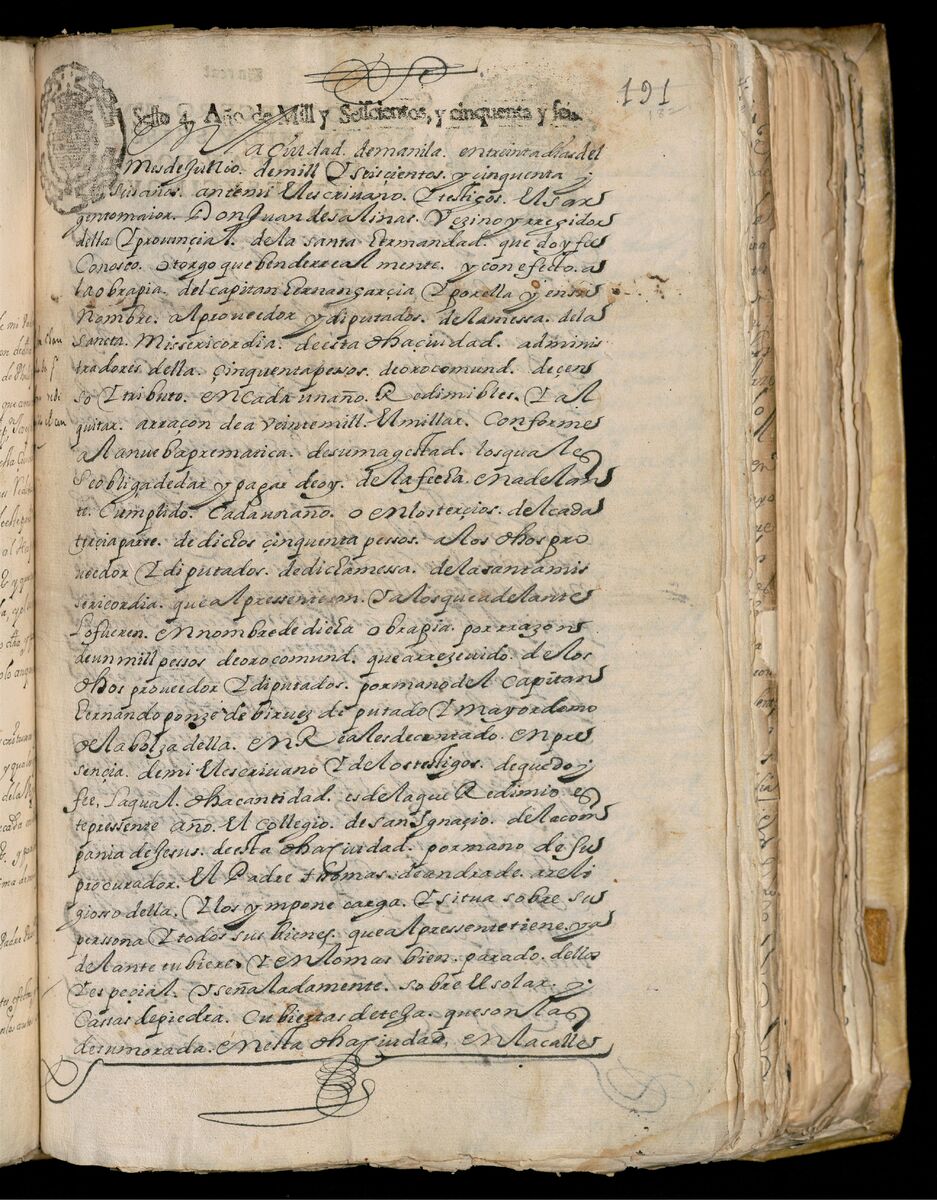 191
Sello 4. Año de Mill y Seiscientos, y cinquenta y seis.
N la ciudad. demanila. entreinta dias del
Mes de Jullio. demill Y seiscientos. y cinquenta y
seis años. antemi El escrivano. Y testigos. El sar
gentomaior. Don Juan de salinas. Vezino y rregidor
della Y provinçial. de la santa Ermandad. que doy fee
Conosco. otorgo que bende rrealmente. y con efecto. a
la obra pia. del capitan Ernan garçia Y por ella y en su
Nombre. al proveedor y diputados. de la messa. de la
sancta. Missericordia. de esta dha çiudad. adminis
tradores. della. çinquenta pesos. de oro comund. de çen
so Y tributo. en cada un año. Redimibles. Y al
quitar. arraçon de a veinte mill El millar. Conforme
a la nueba prematica. de su magestad. los quales
Se obliga de dar y pagar de oy. de la fecha. en adelan
te. Cumplido. Cada un año. o en los terçios. del cada
terçia parte. de dichos çinquenta pessos. a los dhos pro
veedor Y diputados. de dicha messa. de la santa mis
sericordia. que al pressente son. Y a los que adelante
lo fueren. en nombre de dicha obra pia. por rrazon
de un mill pessos de oro comund. que a rrezevido. de los
dhos proveedor Y diputados. por mano del Capitan
Ernando ponze de biruez diputado Y mayordomo
de la bolza della. en Reales de contado. en pre
sençia. de mi El escrivano Y de los testigos. de que doy
fee. la qual. dha cantidad. es de la que Redimio es
te pressente año. El collegio. de san Ignazio. de la com
pania de Jesus. de esta dha çiudad. por mano de su
procurador. El Padre thomas. de andrade. a reli
giosso della. Y los ympone carga. Y situa sobre su
persona Y todos sus bienes. que al pressente tiene. y a
delante tubiere. Y en lo mas bien. parado. dellos
Y especial. Y señaladamente. sobre El solar. y.
Cassas de piedra. Cubiertas de teja. que son las
de su morada. en esta dha çiudad, en la calle